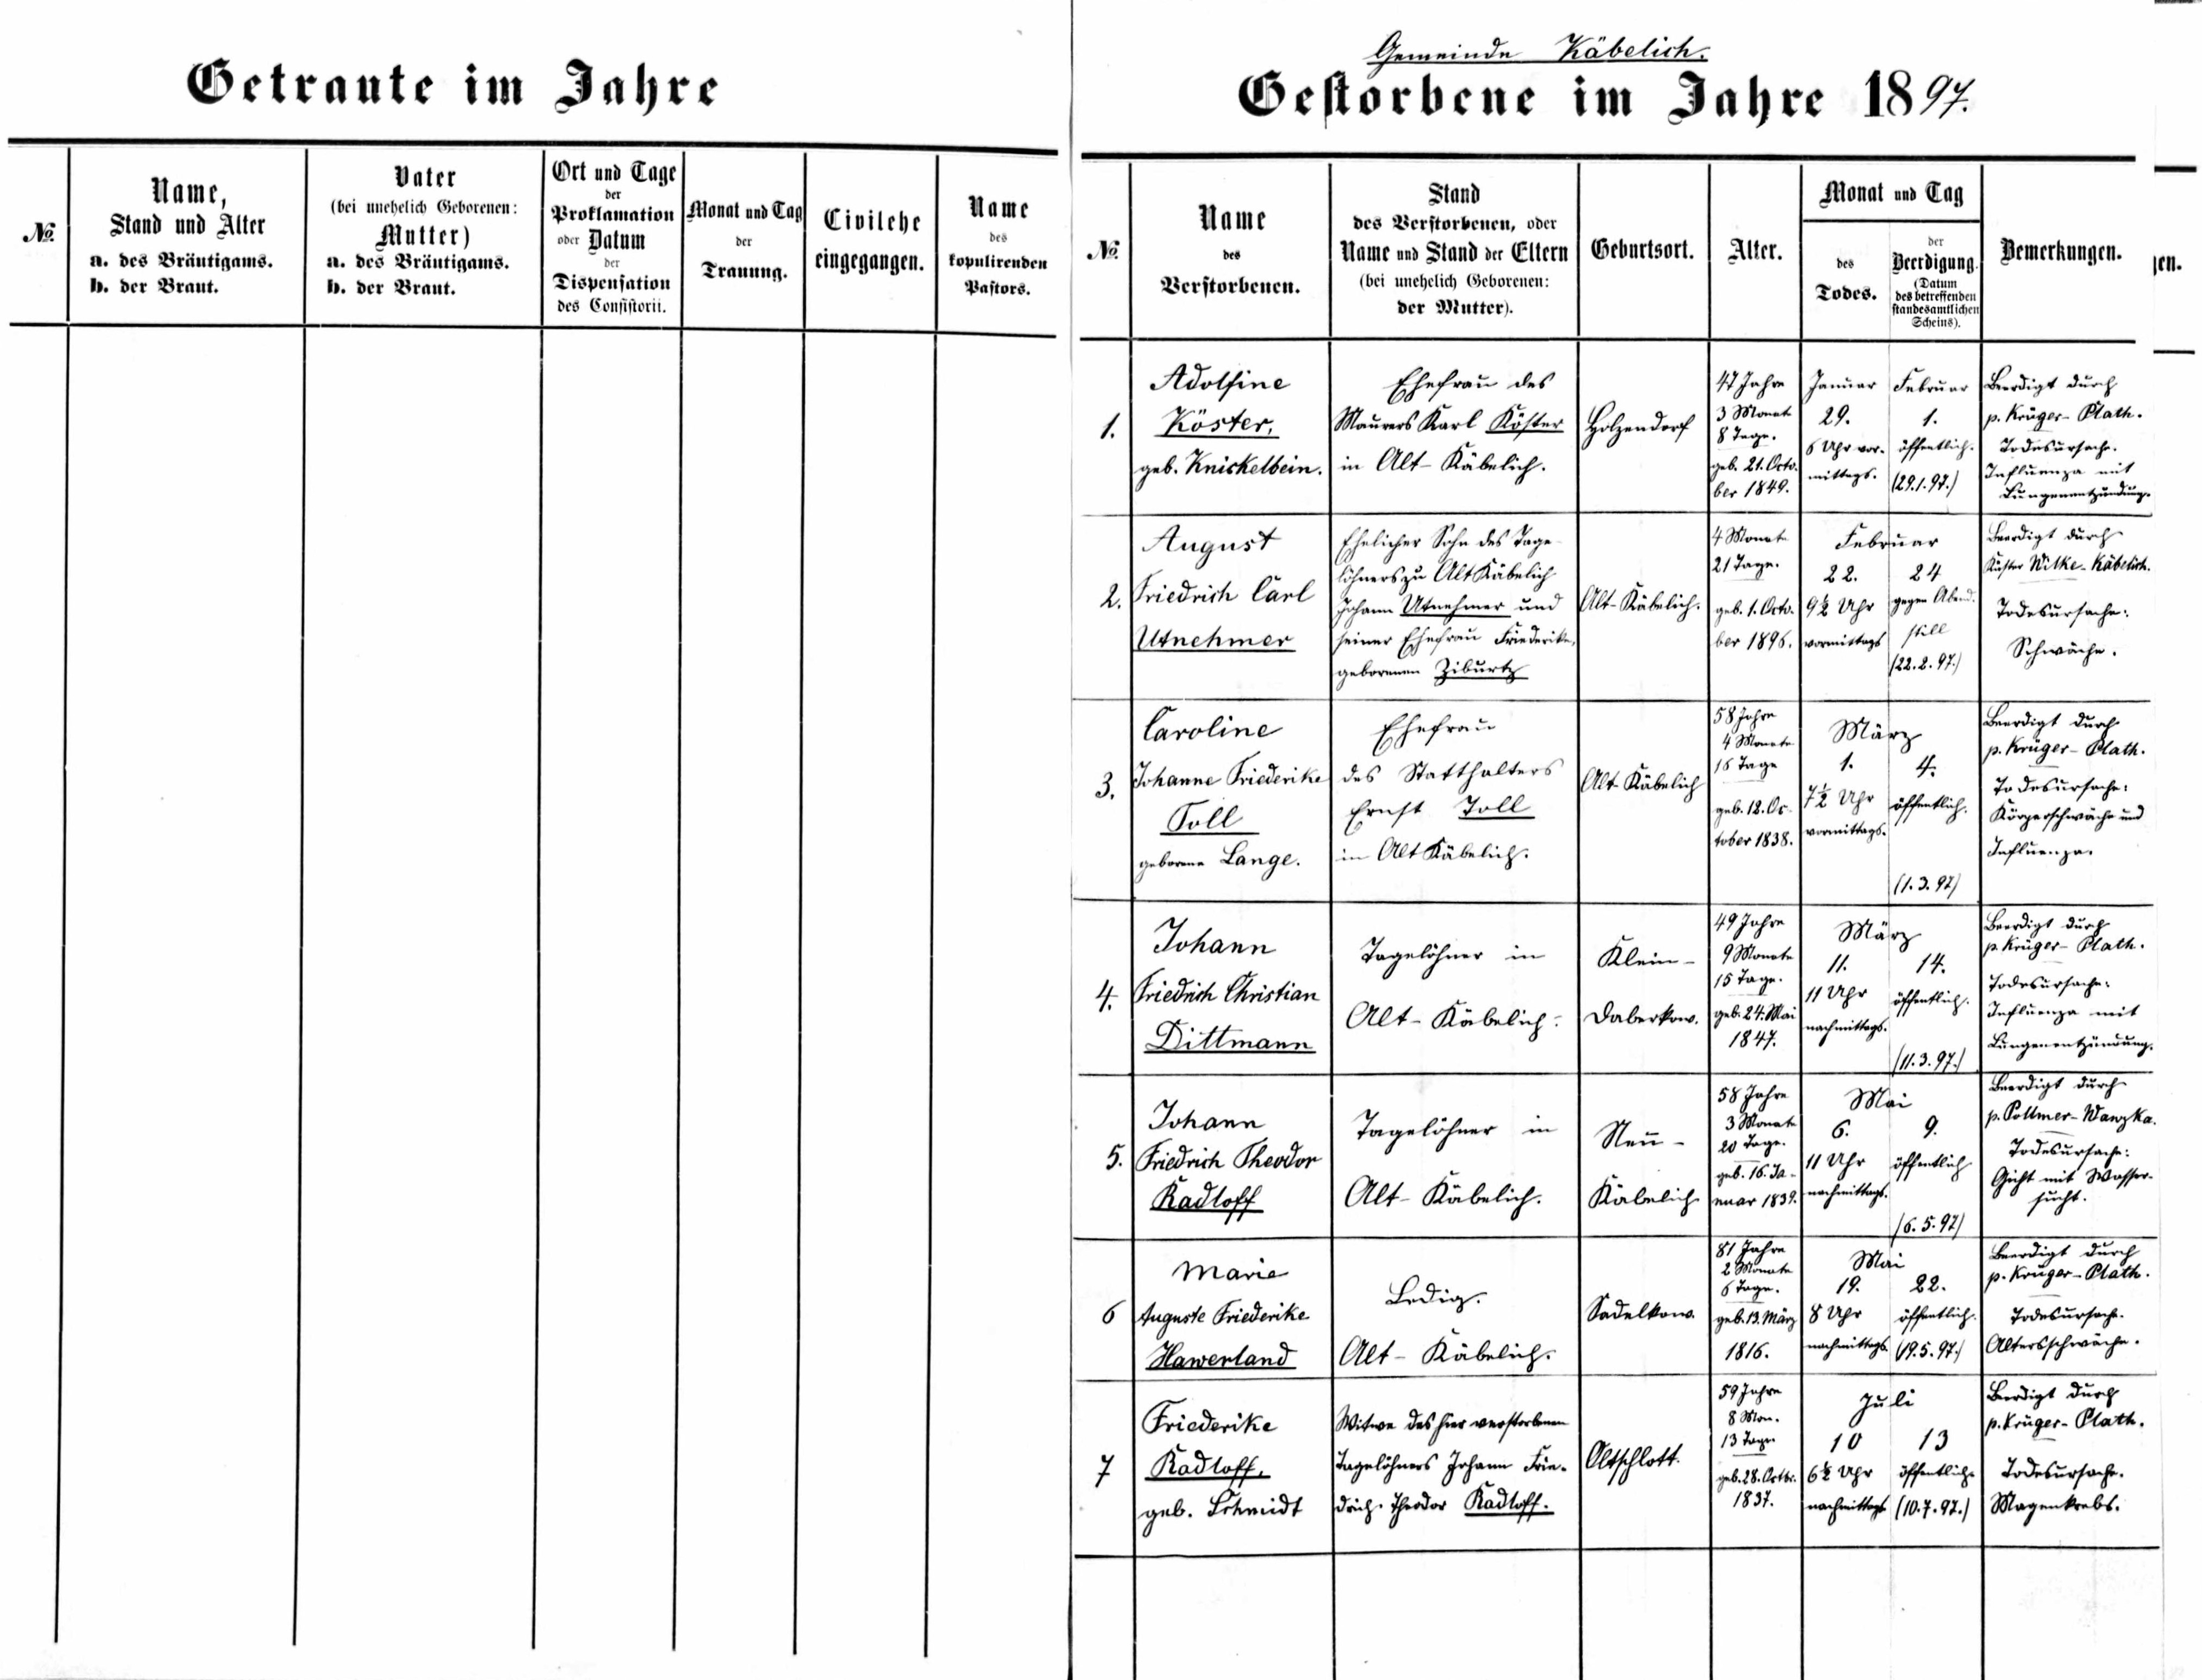 Getraute im Jahre
№.
Name,
Stand und Alter
a. des Bräutigams.
b. der Braut.
Vater
(bei unehelich Geborenen:
Mutter)
a. des Bräutigams.
b. der Braut.
Ort und Tage
der
Proklamation
oder Datum
der
Dispensation
des Consistorii.
Monat und Tag
der
Trauung.
Civilehe
eingegangen.
Name
des
kopulirenden
Pastors.
Gemeinde Käbelich.
Gestorbene im Jahre 1897.
№.
Name
des
Verstorbenen.
Stand
des Verstorbenen, oder
Name und Stand der Eltern
(bei unehelich Geborenen:
der Mutter).
Geburtsort.
Alter.
Monat und Tag
des
Todes.
der
Beerdigung.
(Datum
des betreffenden
standesamtlichen
Scheins).
Bemerkungen.
gen.
1.
Adolfine
Köster,
geb. Knickelbein.
Ehefrau des
Maurers Karl Köster
in Alt-Käbelich.
Holzendorf
47 Jahre
3 Monate
8 Tage.
geb. 21. Octo-
ber 1849.
Januar
29.
6 Uhr vor-
mittags.
Februar
1.
öffentlich.
(29.1.97.)
Beerdigt durch
p. Krüger-Plath.
Todesursache.
Influenza mit
Lungenentzündung.
2.
August
Friedrich Carl
Utnehmer
Ehelicher Sohn des Tage-
löhners zu Alt Käbelich
Johann Utnehmer und
seiner Ehefrau Friederike,
geborenen Ziburtz
Alt-Käbelich.
4 Monate
21 Tage.
geb. 1. Octo-
ber 1896.
Februar
22.
9½ Uhr
vormittags
24
gegen Abend.
still
(22.2.97.)
Beerdigt durch
Küster Wilke-Käbelich.
Todesursache:
Schwäche.
3.
Caroline
Johanne Friederike
Toll
geborene Lange.
Ehefrau
des Statthalters
Ernst Toll
in Alt Käbelich.
Alt-Käbelich
58 Jahre
4 Monate
16 Tage
geb. 12. Oc-
tober 1838.
März
1.
7½ Uhr
vormittags.
4.
öffentlich.
(1.3.97)
Beerdigt durch
p. Krüger-Plath.
Todesursache:
Körperschwäche und
Influenza.
4.
Johann
Friedrich Christian
Dittmann
Tagelöhner in
Alt-Käbelich.
Klein-
Daberkow.
49 Jahre
9 Monate
15 Tage.
geb. 24. Mai
1847.
März
11.
11 Uhr
nachmittags.
14.
öffentlich.
(11.3.97.)
Beerdigt durch
p. Krüger-Plath.
Todesursache:
Influenza mit
Lungenentzündung.
5.
Johann
Friedrich Theodor
Radloff
Tagelöhner in
Alt-Käbelich.
Neu-
Käbelich
58 Jahre
3 Monate
20 Tage.
geb. 16. Ja-
nuar 1839.
Mai
6.
11 Uhr
nachmittags.
9.
öffentlich
(6.5.97)
Beerdigt durch
p. Pollmer-Wanzka.
Todesursache:
Gicht mit Wasser-
sucht.
6
Marie
Auguste Friederike
Hawerland
Ledig.
Alt-Käbelich.
Sadelkow.
81 Jahre
2 Monate
6 Tage.
geb. 13. März
1816.
Mai
19.
8 Uhr
nachmittags.
22.
öffentlich.
(19.5.97.)
Beerdigt durch
p. Krüger-Plath.
Todesursache.
Altersschwäche.
7
Friederike
Radloff,
geb. Schmidt
Witwe des hier verstorbenen
Tagelöhners Johann Frie-
drich Theodor Radloff.
Oltschlott.
59 Jahre
8 Mon.
13 Tage
geb. 28. Octbr.
1837.
Juli
10
6½ Uhr
nachmittags
13
öffentlich
(10.7.97.)
Beerdigt durch
p. Krüger-Plath.
Todesursache.
Magenkrebs.